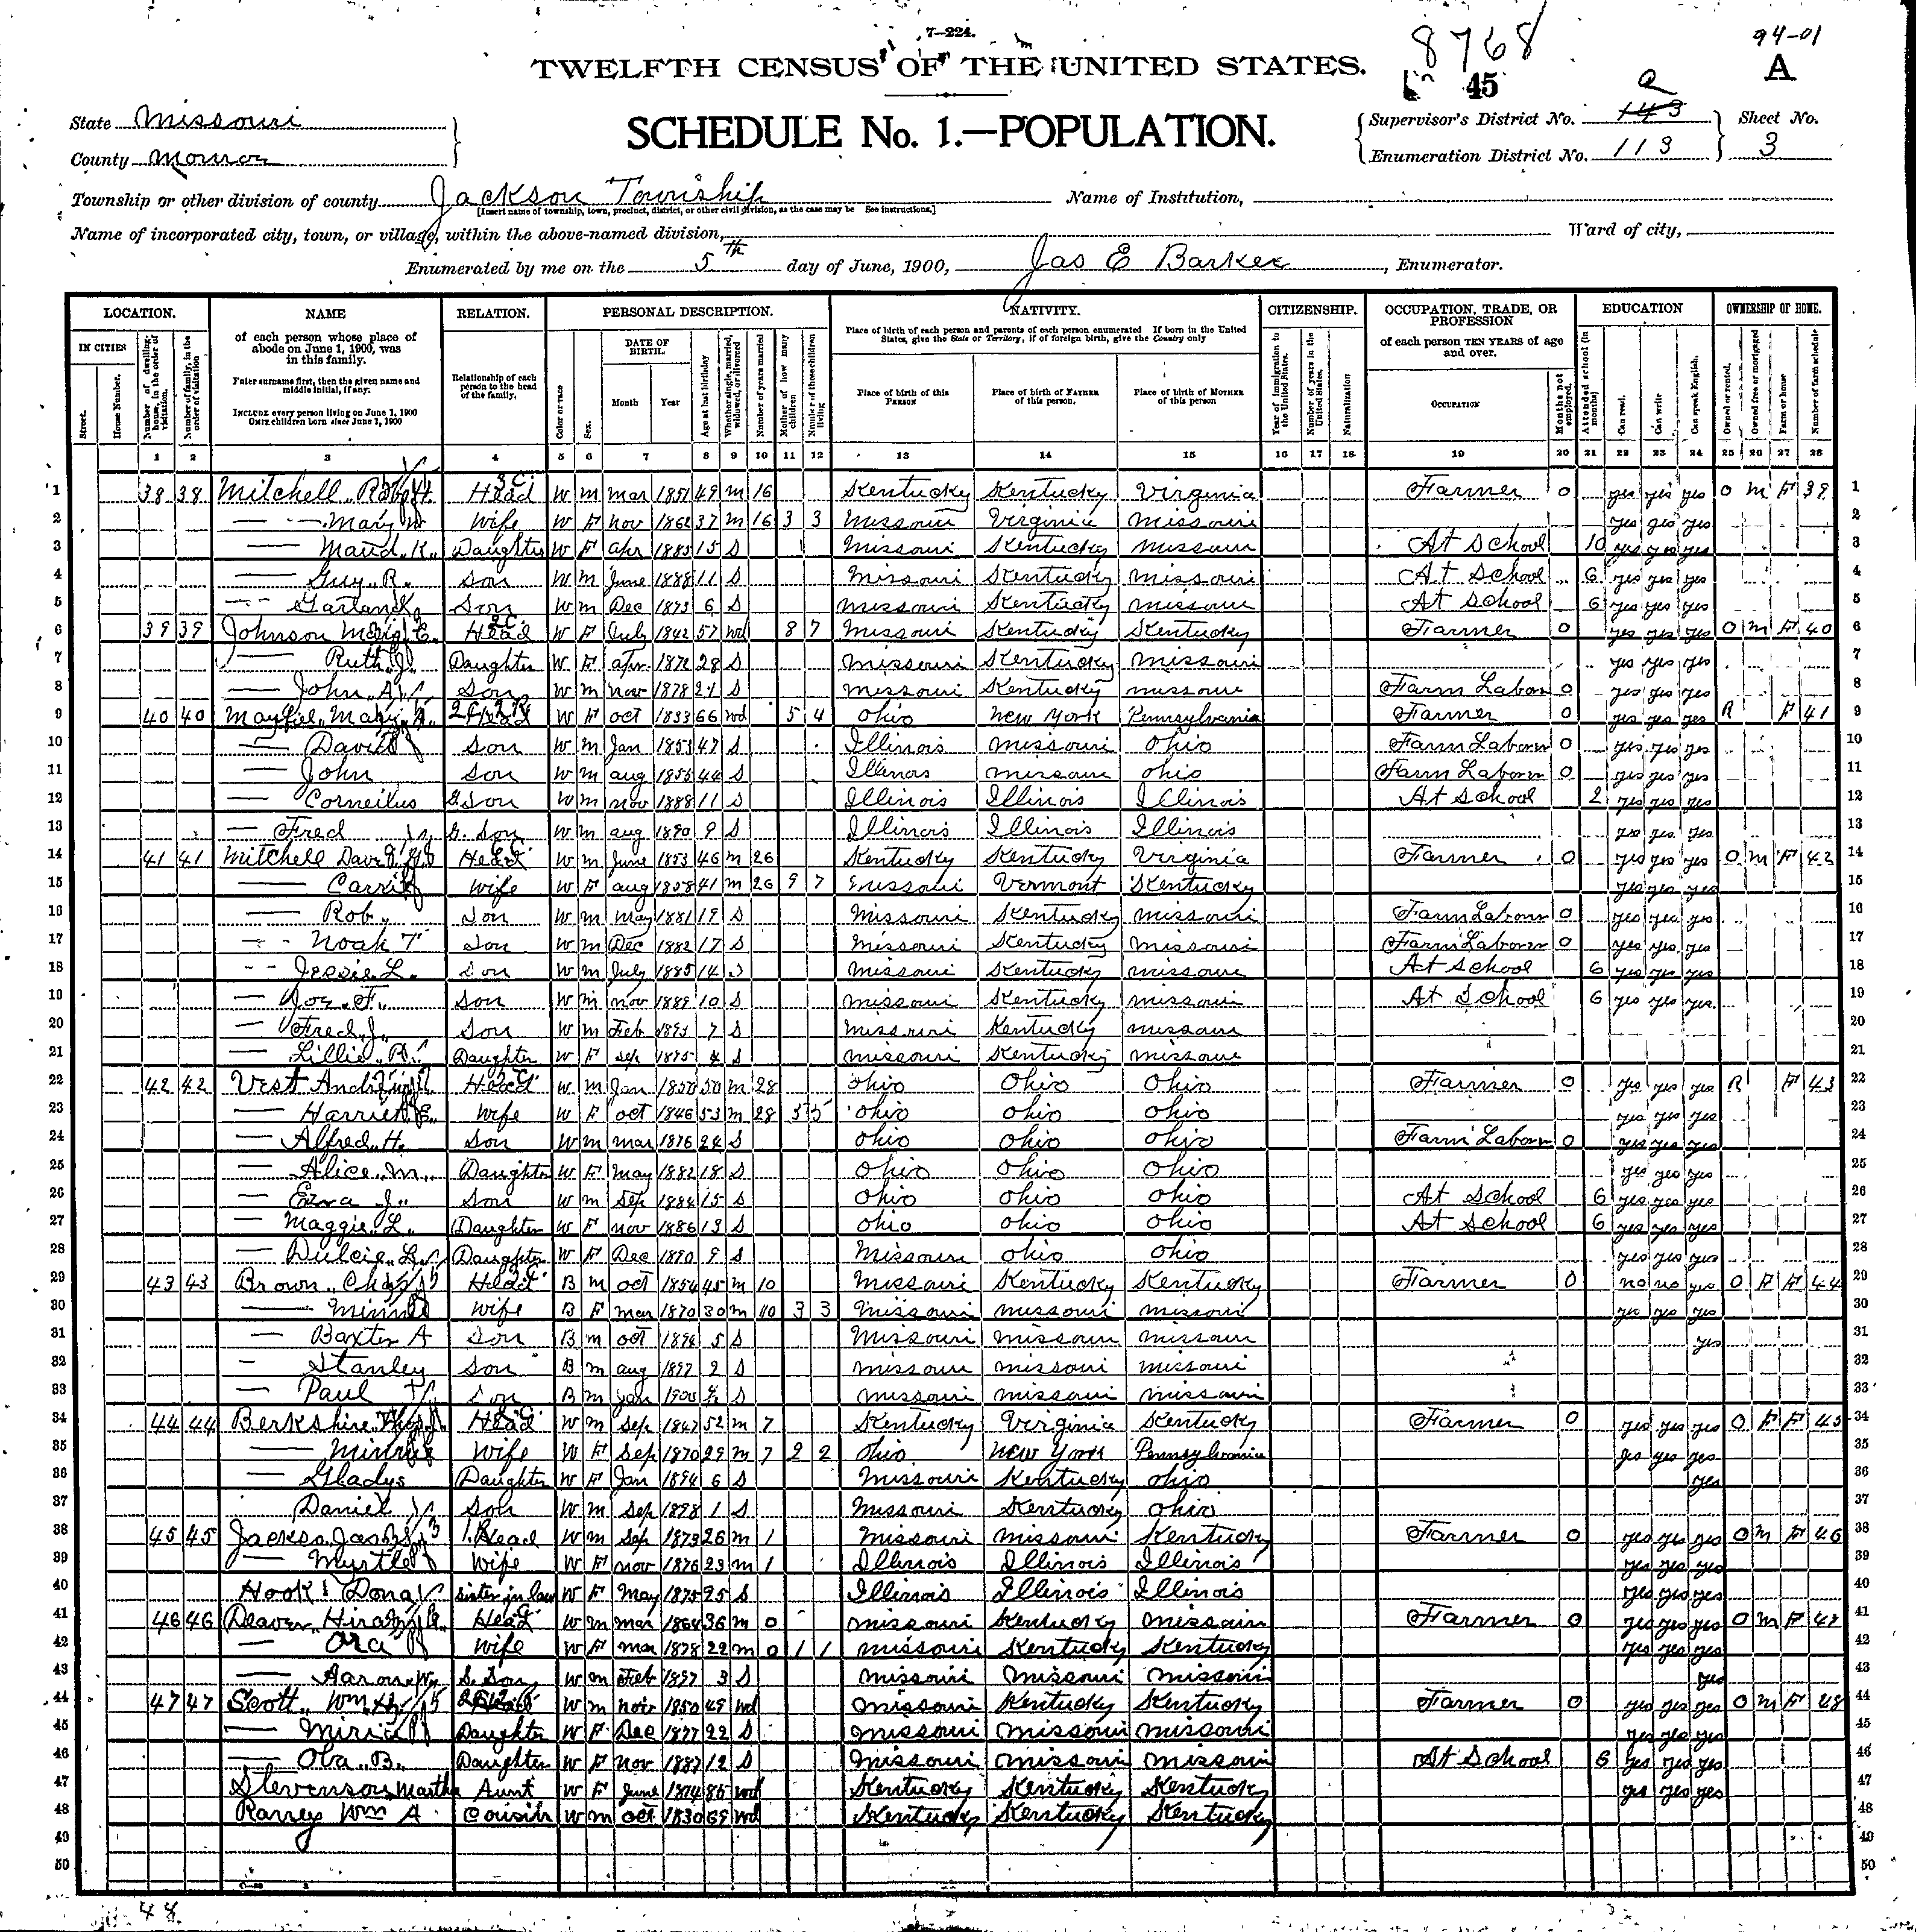 7—224.
8768
94-01
TWELFTH CENSUS OF THE UNITED STATES.
45
A
State Missouri
SCHEDULE No. 1.—POPULATION.
Supervisor's District No. 143 2
Sheet No.
County Monroe
Enumeration District No. 113
3
Township or other division of county Jackson Township Name of Institution,
[Insert name of township, town, precinct, district, or other civil division, as the case may be See instructions.]
Name of incorporated city, town, or village, within the above-named division, Ward of city,
Enumerated by me on the 5th day of June, 1900, Jas E Barker, Enumerator.
LOCATION. NAME RELATION. PERSONAL DESCRIPTION. NATIVITY. CITIZENSHIP. OCCUPATION, TRADE, OR PROFESSION EDUCATION OWNERSHIP OF HOME.
IN CITIES
Street.
House Number.
Number of dwelling-house, in the order of visitation.
Number of family, in the order of visitation.
of each person whose place of abode on June 1, 1900, was in this family.
Enter surname first, then the given name and middle initial, if any.
INCLUDE every person living on June 1, 1900
OMIT children born since June 1, 1900
Relationship of each person to the head of the family.
Color or race
Sex.
DATE OF BIRTH.
Month Year
Age at last birthday
Whether single, married, widowed, or divorced
Number of years married
Mother of how many children
Number of these children living
Place of birth of each person and parents of each person enumerated If born in the United States, give the State or Territory, if of foreign birth, give the Country only
Place of birth of this PERSON
Place of birth of FATHER of this person.
Place of birth of MOTHER of this person
Year of immigration to the United States.
Number of years in the United States.
Naturalization
of each person TEN YEARS of age and over.
OCCUPATION
Months not employed.
Attended school (in months)
Can read.
Can write
Can speak English.
Owned or rented.
Owned free or mortgaged
Farm or house
Number of farm schedule
1 2 3 4 5 6 7 8 9 10 11 12 13 14 15 16 17 18 19 20 21 22 23 24 25 26 27 28
1 38 38 Mitchell Head W m mar 1851 49 m 16 Kentucky Kentucky Virginia Farmer 0 yes yes yes O m F 39 1
2 — Mary Wife W F nov 1862 37 m 16 3 3 Missouri Virginia Missouri yes yes yes 2
3 — Maud K. Daughter W F apr 1885 15 S Missouri Kentucky Missouri At School 10 yes yes yes 3
4 — Guy R. Son W m June 1888 11 S Missouri Kentucky Missouri At School 6 yes yes yes 4
5 — Garland Son W m Dec 1893 6 S Missouri Kentucky Missouri At School 6 yes yes yes 5
6 39 39 Johnson E. Head W F July 1842 57 wd 8 7 Missouri Kentucky Kentucky Farmer 0 yes yes yes O m F 40 6
7 — Ruth J. Daughter W F apr 1872 28 S Missouri Kentucky Missouri yes yes yes 7
8 — John A. Son W m nov 1878 21 S Missouri Kentucky Missouri Farm Labor 0 yes yes yes 8
9 40 40 Mary Head W F oct 1833 66 wd 5 4 Ohio New York Pennsylvania Farmer 0 yes yes yes R F 41 9
10 — David Son W m Jan 1853 47 S Illinois Missouri Ohio Farm Laborer 0 yes yes yes 10
11 — John Son W m aug 44 S Illinois Missouri Ohio Farm Laborer 0 yes yes yes 11
12 — Corneilus G. Son W m nov 1888 11 S Illinois Illinois Illinois At School 2 yes yes yes 12
13 — Fred G. Son W m aug 1890 9 S Illinois Illinois Illinois yes yes yes 13
14 41 41 Mitchell Head W m June 1853 46 m 26 Kentucky Kentucky Virginia Farmer 0 yes yes yes O m F 42 14
15 — Carrie Wife W F aug 1858 41 m 26 9 7 Missouri Vermont Kentucky yes yes yes 15
16 — Rob. Son W m May 1881 19 S Missouri Kentucky Missouri Farm Laborer 0 yes yes yes 16
17 — Noah T Son W m Dec 1882 17 S Missouri Kentucky Missouri Farm Laborer 0 yes yes yes 17
18 — Jessie L. Son W m July 1885 14 S Missouri Kentucky Missouri At School 6 yes yes yes 18
19 — F. Son W m nov 1889 10 S Missouri Kentucky Missouri At School 6 yes yes yes 19
20 — Fred J. Son W m Feb 1893 7 S Missouri Kentucky Missouri 20
21 — Lillie Daughter W F Sep 1895 4 S Missouri Kentucky Missouri 21
22 42 42 Vest Head W m Jan 1850 50 m 28 Ohio Ohio Ohio Farmer 0 yes yes yes R F 43 22
23 — Harriet E. Wife W F oct 1846 53 m 28 5 5 Ohio Ohio Ohio yes yes yes 23
24 — Alfred H. Son W m mar 1876 24 S Ohio Ohio Ohio Farm Laborer 0 yes yes yes 24
25 — Alice M. Daughter W F May 1882 18 S Ohio Ohio Ohio yes yes yes 25
26 — Ezra J. Son W m Sep 1884 15 S Ohio Ohio Ohio At School 6 yes yes yes 26
27 — Maggie L. Daughter W F nov 1886 13 S Ohio Ohio Ohio At School 6 yes yes yes 27
28 — Dulcie L. Daughter W F Dec 1890 9 S Missouri Ohio Ohio yes yes yes 28
29 43 43 Brown Chas Head B m oct 1854 45 m 10 Missouri Kentucky Kentucky Farmer 0 no no yes O F F 44 29
30 — Minnie Wife B F mar 1870 30 m 10 3 3 Missouri Missouri Missouri yes yes yes 30
31 — Baxter A Son B m oct 1894 5 S Missouri Missouri Missouri yes 31
32 — Stanley Son B m aug 1897 2 S Missouri Missouri Missouri 32
33 — Paul Son B m Jan 1900 S Missouri Missouri Missouri 33
34 44 44 Berkshire Head W m Sep 1847 52 m 7 Kentucky Virginia Kentucky Farmer 0 yes yes yes O F F 45 34
35 — Minnie Wife W F Sep 1870 29 m 7 2 2 Ohio New York Pennsylvania yes yes yes 35
36 — Gladys Daughter W F Jan 1894 6 S Missouri Kentucky Ohio yes 36
37 Daniel Son W m Sep 1898 1 S Missouri Kentucky Ohio 37
38 45 45 Head W m Sep 1873 26 m 1 Missouri Missouri Kentucky Farmer 0 yes yes yes O m F 46 38
39 — Myrtle Wife W F nov 1876 23 m 1 Illinois Illinois Illinois yes yes yes 39
40 Hook Dona Sister in law W F May 1875 25 S Illinois Illinois Illinois yes yes yes 40
41 46 46 Deaver Hiram Head W m mar 1864 36 m 0 Missouri Kentucky Missouri Farmer 0 yes yes yes O m F 47 41
42 — Ora Wife W F mar 1878 22 m 0 1 1 Missouri Kentucky Kentucky yes yes yes 42
43 — Aaron S. Son W m Feb 1897 3 S Missouri Missouri Missouri yes 43
44 47 47 Scott Wm Head W m nov 1850 49 wd Missouri Kentucky Kentucky Farmer 0 yes yes yes O m F 48 44
45 — Daughter W F Dec 1877 22 S Missouri Missouri Missouri yes yes yes 45
46 — Oba B. Daughter W F Nov 1887 12 S Missouri Missouri Missouri At School 6 yes yes yes 46
47 Stevenson Martha Aunt W F June 1814 85 wd Kentucky Kentucky Kentucky yes yes yes 47
48 Raney Wm A Cousin W m oct 1830 69 wd Kentucky Kentucky Kentucky 48
49 49
50 50
48